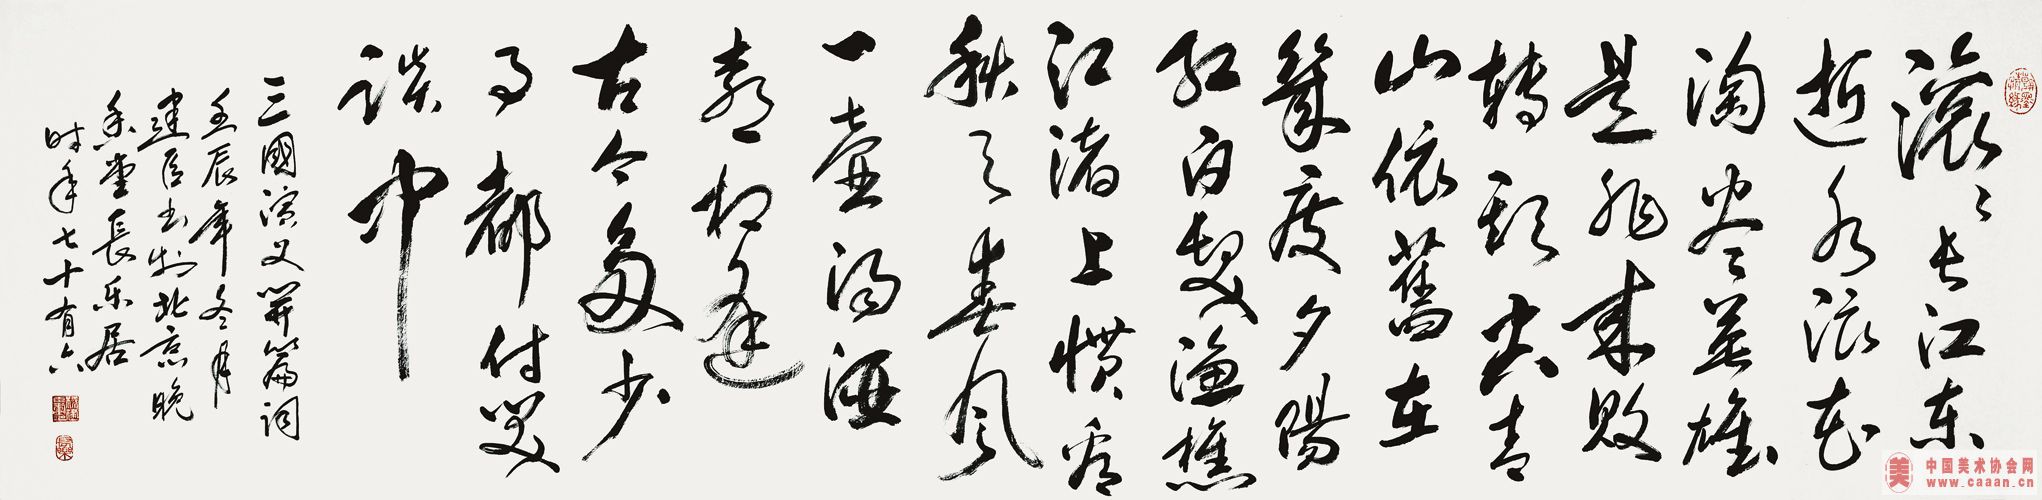 滚〻长江东
逝水浪花
淘尽英雄
是非成败
转头空青
山依舊在
幾度夕陽
红白髮渔樵
江渚上惯看
秋月春风
一壶浊酒
喜相逢
古今多少
事都付笑
谈中
三國演义開篇词
壬辰年冬月
建臣书於北京晚
香堂長乐居
时年七十有六
中国美术协会网
www.caaan.cn